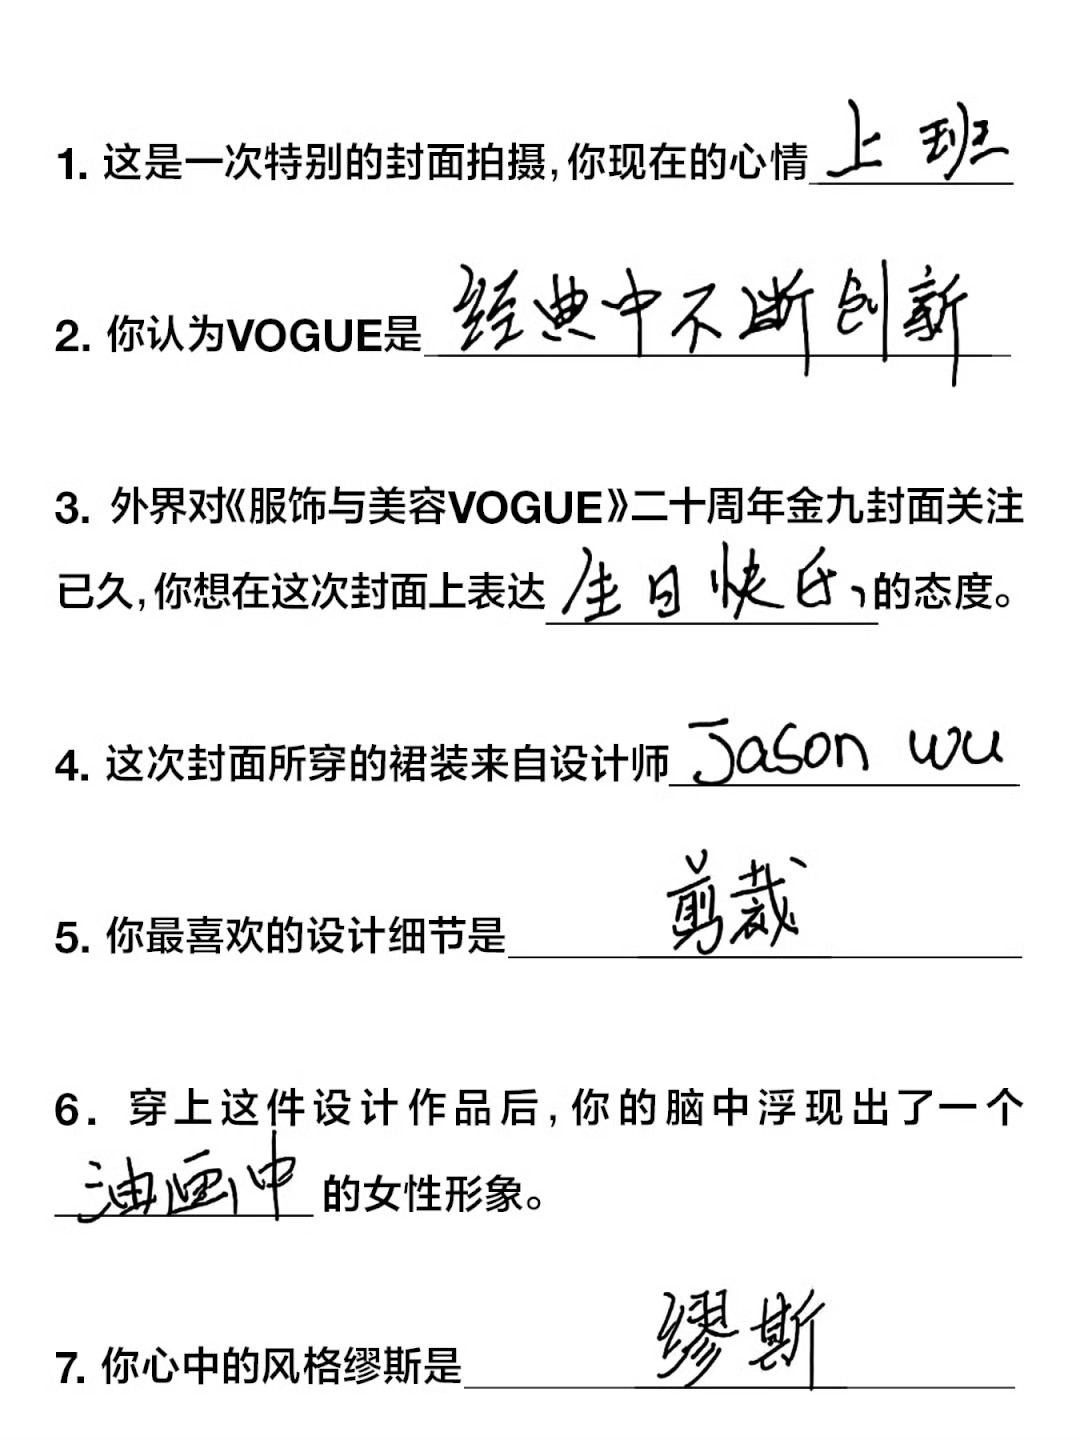 1. 这是一次特别的封面拍摄,你现在的心情上班
2. 你认为VOGUE是经典中不断创新
3. 外界对《服饰与美容VOGUE》二十周年金九封面关注
已久,你想在这次封面上表达生日快乐的态度。
4. 这次封面所穿的裙装来自设计师Jason Wu
5. 你最喜欢的设计细节是剪裁
6. 穿上这件设计作品后,你的脑中浮现出了一个
油画中的女性形象。
7. 你心中的风格缪斯是缪斯